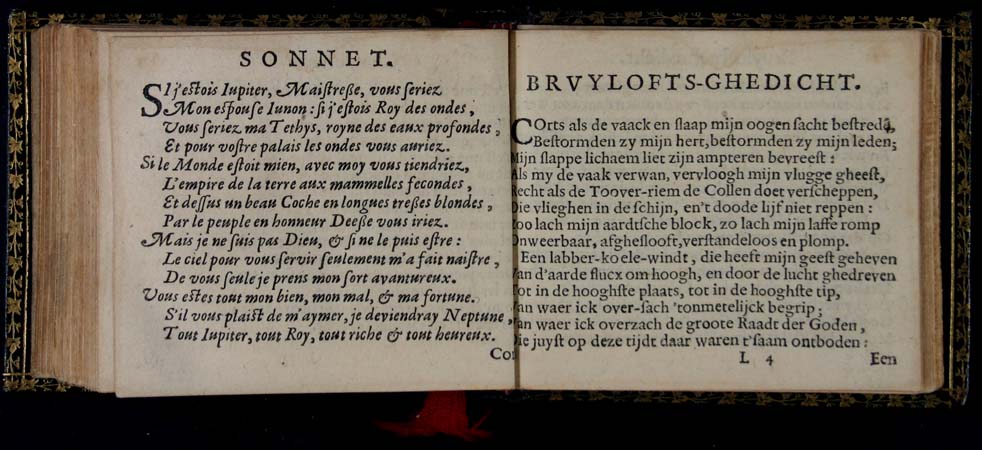 SONNET.
SI j'estois Iupiter, Maistresse, vous seriez
Mon espouse Iunon: si j'estois Roy des ondes,
Vous seriez ma Tethys, royne des eaux profondes,
Et pour vostre palais les ondes vous auriez.
Si le Monde estoit mien, avec moy vous tiendriez,
L'empire de la terre aux mammelles fecondes,
Et dessus un beau Coche en longues tresses blondes,
Par le peuple en honneur Deesse vous iriez.
Mais je ne suis pas Dieu, & si ne le puis estre:
Le ciel pour vous servir seulement m'a fait naistre,
De vous seule je prens mon sort avantureux.
Vous estes tout mon bien, mon mal, & ma fortune.
S'il vous plaist de m'aymer, je deviendray Neptune,
Tout Iupiter, tout Roy, tout riche & tout heureux.
BRVYLOFTS-GHEDICHT.
COrts als de vaack en slaap mijn oogen sacht bestredē,
Bestormden zy mijn hert, bestormden zy mijn leden;
Mijn slappe lichaem liet zijn ampteren bevreest:
Als my de vaak verwan, vervloogh mijn vlugge gheest,
Recht als de Toover-riem de Collen doet verscheppen,
Die vlieghen in de schijn, en't doode lijf niet reppen:
Zoo lach mijn aardtsche block, zo lach mijn laffe romp
Onweerbaar, afgheslooft, verstandeloos en plomp.
Een labber-koele-windt, die heeft mijn geest geheven
Van d'aarde flucx om hoogh, en door de lucht ghedreven
Tot in de hooghste plaats, tot in de hooghste tip,
Van waer ick over-sach 'tonmetelijck begrip;
Van waer ick overzach de groote Raadt der Goden,
Die juyst op deze tijdt daar waren t'saam ontboden:
L 4 Een